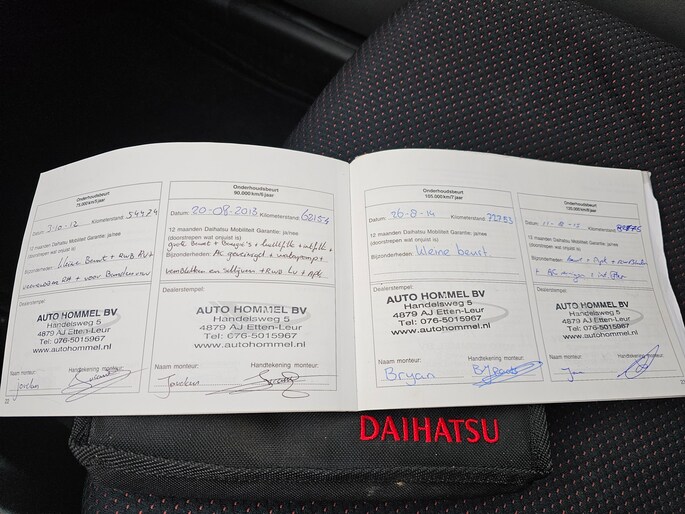 Onderhoudsbeurt
75.000 km/5 jaar
Datum: 3-10-12 Kilometerstand: 54474
12 maanden Daihatsu Mobiliteit Garantie: ja/nee
(doorstrepen wat onjuist is)
Bijzonderheden: kleine Beurt +
Dealerstempel:
AUTO HOMMEL BV
Handelsweg 5
4879 AJ Etten-Leur
Tel: 076-5015967
www.autohommel.nl
Naam monteur: Handtekening monteur:
Jordan
22
Onderhoudsbeurt
90.000 km/6 jaar
Datum: 20-08-2013 Kilometerstand:
12 maanden Daihatsu Mobiliteit Garantie: ja/nee
(doorstrepen wat onjuist is)
grote Beurt + Bougie's + luchtfilter +
Bijzonderheden: AC gereinigd +
Dealerstempel:
AUTO HOMMEL BV
Handelsweg 5
4879 AJ Etten-Leur
Tel: 076-5015967
www.autohommel.nl
Naam monteur: Handtekening monteur:
Onderhoudsbeurt
105.000 km/7 jaar
Datum: 26-8-14 Kilometerstand:
12 maanden Daihatsu Mobiliteit Garantie: ja/nee
(doorstrepen wat onjuist is)
Bijzonderheden: kleine beurt
Dealerstempel:
AUTO HOMMEL BV
Handelsweg 5
4879 AJ Etten-Leur
Tel: 076-5015967
www.autohommel.nl
Naam monteur: Handtekening monteur:
Bryan
Onderhoudsbeurt
120.000 km/8 jaar
Datum: Kilometerstand:
12 maanden Daihatsu Mobiliteit Garantie: ja/nee
(doorstrepen wat onjuist is)
Bijzonderheden:
Dealerstempel:
AUTO HOMMEL BV
Handelsweg 5
4879 AJ Etten-Leur
Tel: 076-5015967
www.autohommel.nl
Naam monteur: Handtekening monteur:
DAIHATSU